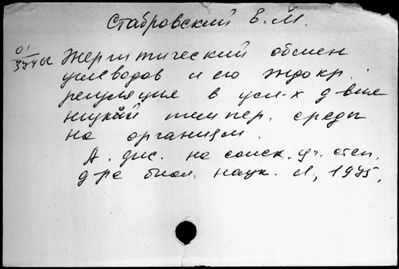 Стабровский Е.М.
Энергетический обмен
углеводов и его эндокр.
регуляция в усл-х д-вия
низкой темпер. среды
на организм.
А. дис. на соиск. уч. степ.
д-ра биол. наук. Л, 1975.